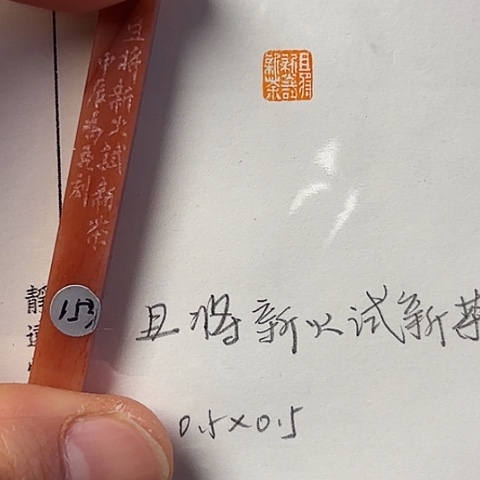 且將新火試新茶
甲辰
刻
且將新火試新茶
153
靜
且将新火试新茶
0.5×0.5